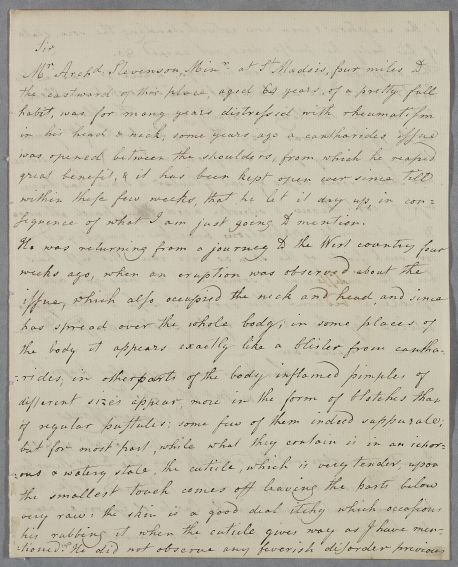 Sir
Mr. Archd. Stevenson, Minr. at St Madois, four miles to
the eastward of this place, aged 64 years, of a pretty full
habit, was for many years distressed with rheumatism
in his head & neck, some years ago a cantharides issue
was opened between the shoulders, from which he reaped
great benefit, & it has been kept open ever since till
within these few weeks, that he let it dry up, in con-
sequence of what I am just going to mention.
He was returning from a journey to the West country four
weeks ago, when an eruption was observed about the
issue, which also occupied the neck and head, and since
has spread over the whole body; in some places of
the body it appears exactly like a blister from cantha-
rides, in other parts of the body inflamed pimples of
different sizes appear more in the form of blotches than
of regular pustules; some few of them indeed suppurate,
but for most part, while what they contain is in an ichor-
ous & watery state, the cuticle, which is very tender, upon
the smallest touch comes off leaving the parts below
very raw: the skin is a good deal itchy which occasions
his rubbing it when the cuticle gives way as I have men-
tioned. He did not observe any feverish disorder previous